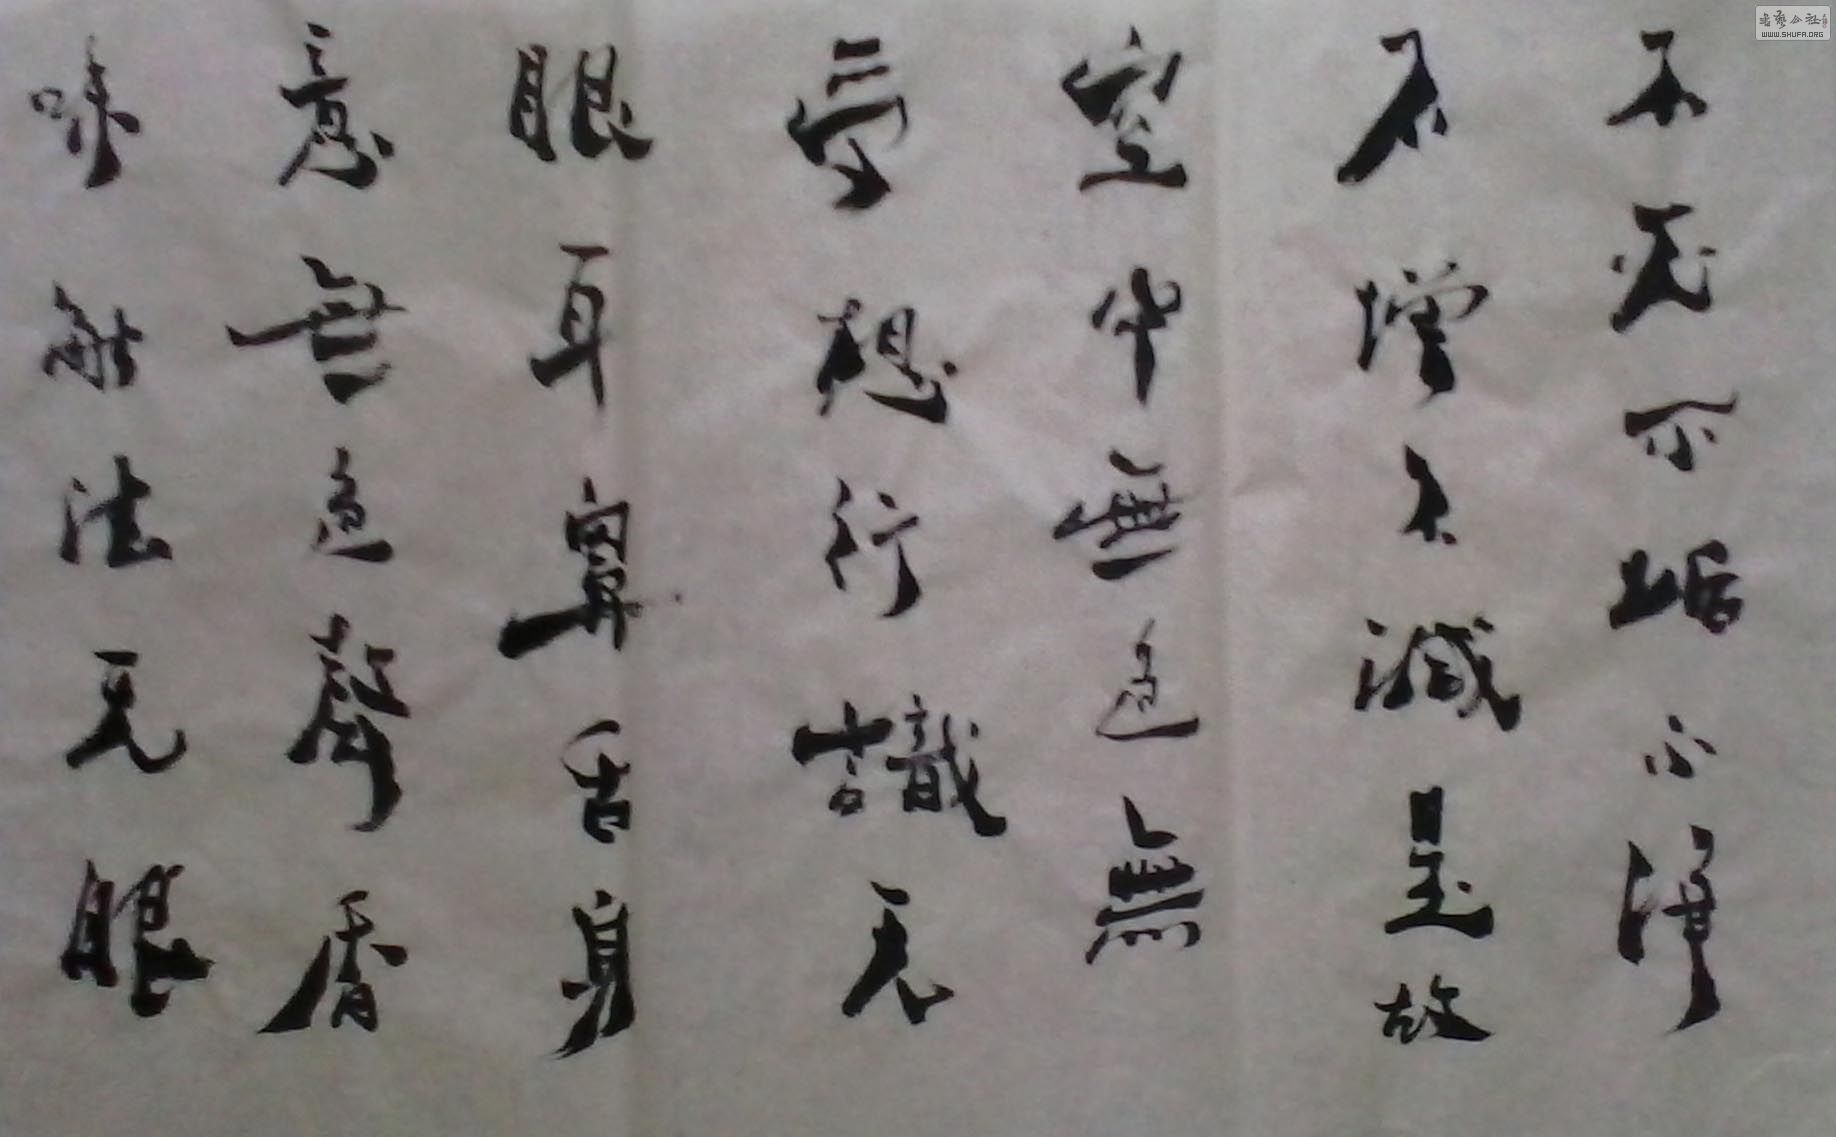 不灭不垢不淨
不增不減是故
空中無色無
受想行識无
眼耳鼻舌身
意無色聲香
味触法无眼
書藝公社
WWW.SHUFA.ORG